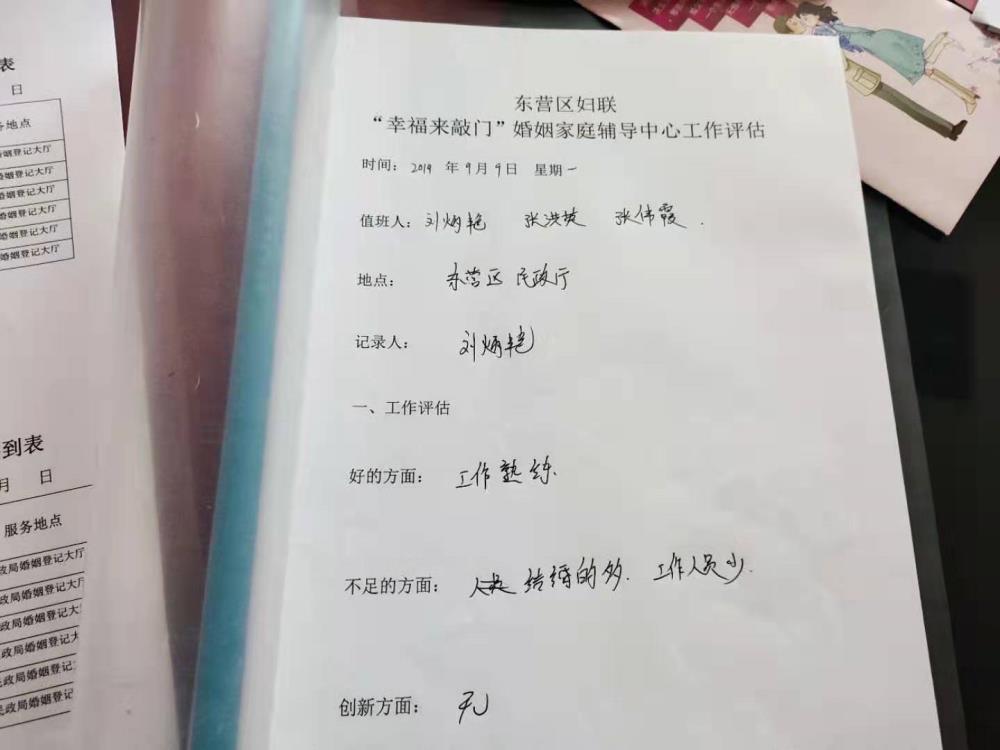 表
日
务地点
婚姻登记大厅
婚姻登记大厅
婚姻登记大厅
婚姻登记大厅
婚姻登记大厅
婚姻登记大厅
到表
月 日
服务地点
政局婚姻登记大厅
政局婚姻登记大厅
政局婚姻登记大
政局婚姻登记大
民政局婚姻登记
民政局婚姻登记
东营区妇联
“幸福来敲门”婚姻家庭辅导中心工作评估
时间： 2019 年 9 月 9 日 星期一
值班人： 刘炳艳 张洪 张伟霞.
地点： 东营区 民政厅
记录人： 刘炳艳
一、工作评估
好的方面： 工作熟练.
不足的方面： 结婚的多. 工作人员少.
创新方面： 无